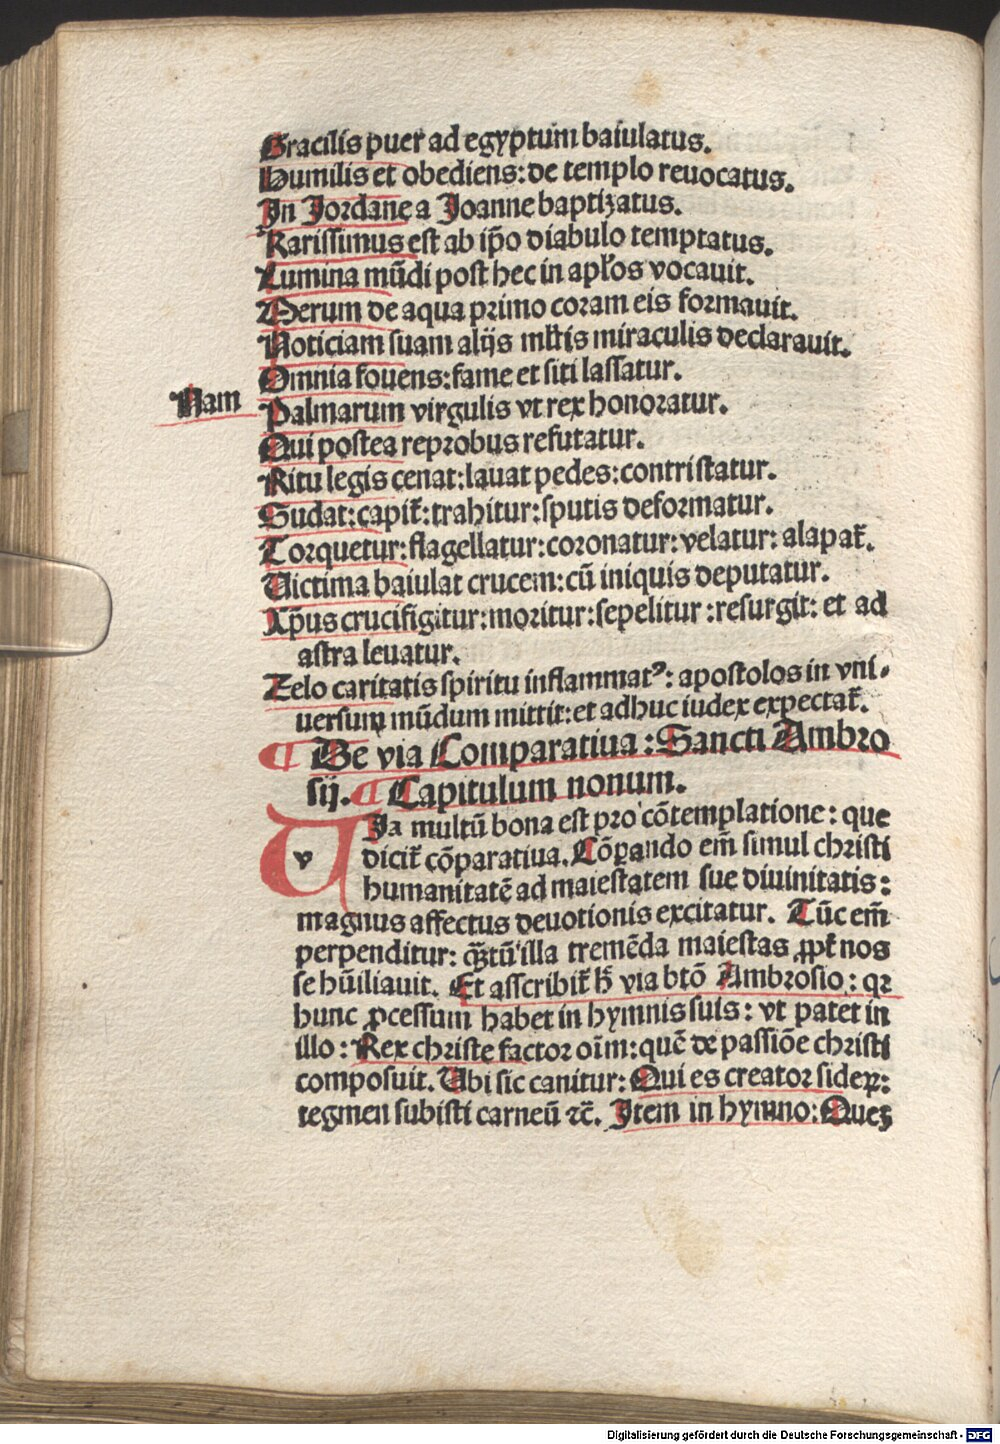 Gracilis puer ad egyptum baiulatus.
Humilis et obediens: de templo reuocatus.
In Jordane a Joanne baptizatus.
Karissimus est ab ip̄o diabulo temptatus.
Lumina mūdi post hec in apłos vocauit.
Merum de aqua primo coram eis formauit.
Noticiam suam alijs mltis miraculis declarauit.
Omnia fouens: fame et siti lassatur.
Nam
Palmarum virgulis vt rex honoratur.
Qui postea reprobus refutatur.
Ritu legis cenat: lauat pedes: contristatur.
Sudat: capit᷑: trahitur: sputis deformatur.
Torquetur: flagellatur: coronatur: velatur: alapat᷑.
Uictima baiulat crucem: cū iniquis deputatur.
Xp̄us crucifigitur: moritur: sepelitur: resurgit: et ad
astra leuatur.
Zelo caritatis spiritu inflammatꝰ: apostolos in vni-
uersum mūdum mittit: et adhuc iudex expectat᷑.
¶ De via Comparatiua: Sancti Ambro
sij. ¶ Capitulum nonum.
v Ja multū bona est pro cōtemplatione: que
dicit᷑ cōparatiua. Cōꝑando em̄ simul christi
humanitatē ad maiestatem sue diuinitatis:
magnus affectus deuotionis excitatur. Tūc em̄
perpenditur: q̄ꝫtū illa tremēda maiestas ꝓpt᷑ nos
se hūiliauit. Et asscribit᷑ h̄ via btō Ambrosio: qꝛ
hunc ꝓcessum habet in hymnis suis: vt patet in
illo: Rex christe factor oīm: quē de passiōe christi
composuit. Ubi sic canitur: Qui es creator sideꝝ:
tegmen subisti carneū ⁊c̄. Item in hymno: Queꝫ